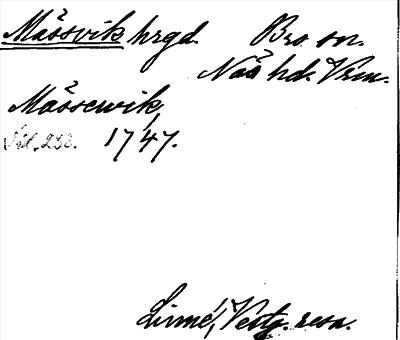 Mässvik hrgd. Bro sn.
Näs hd. Vrm.
Mässewik,
Sid. 233. 1747.
Linné, Vestg. resa.